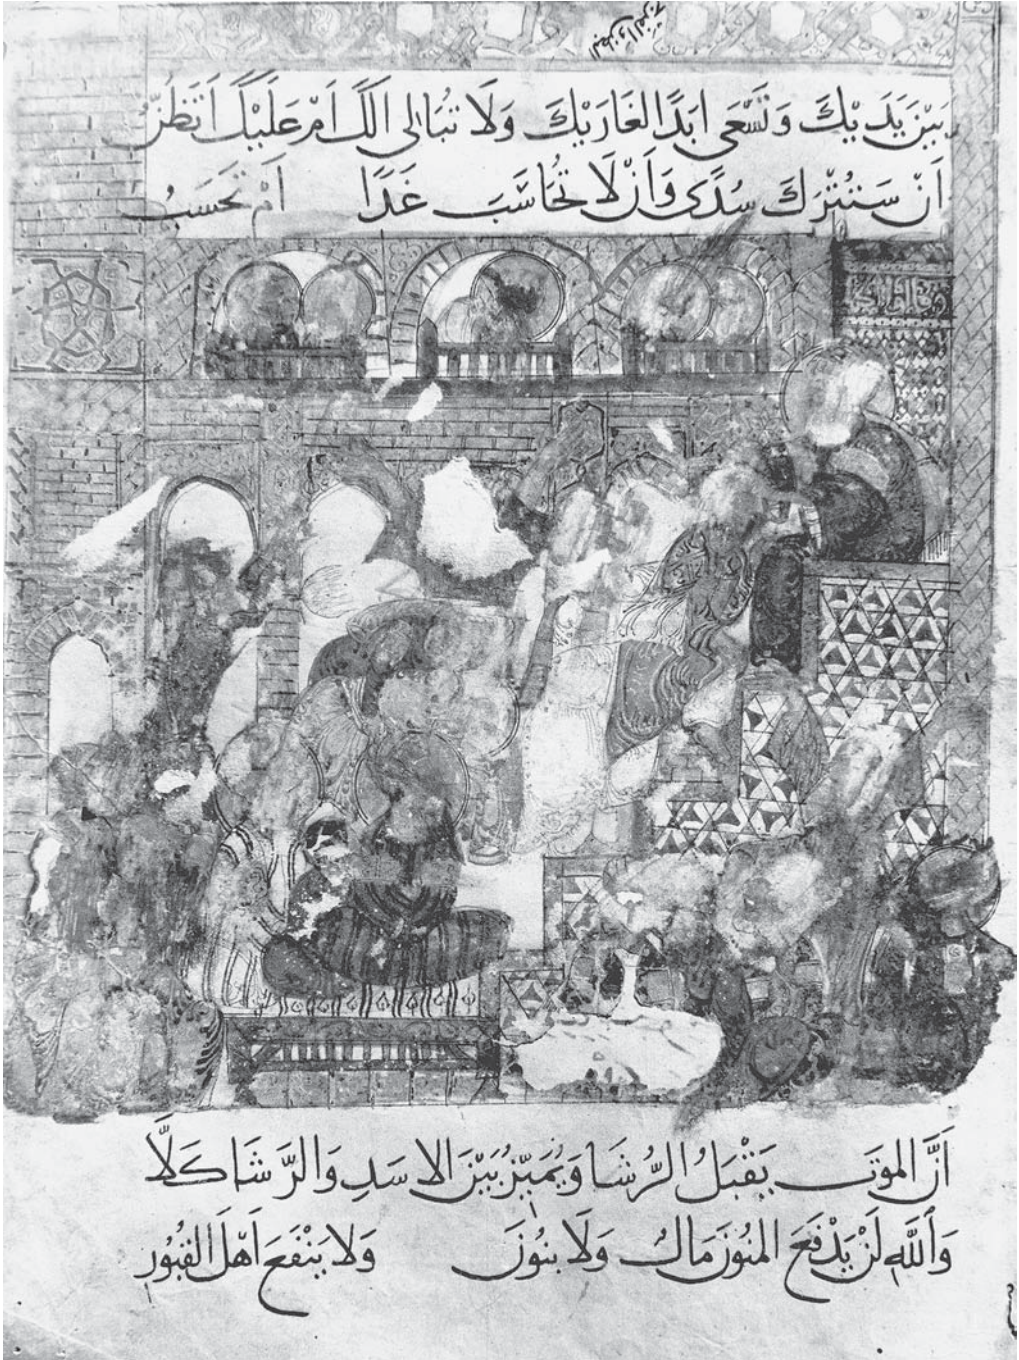 بَيْنَ يَدَيْكَ وَتَسْعَى اَبَدًا لغَارَيْكَ وَلَا تُبَالِى اَلَكَ اَمْ عَلَيْكَ اَتَظُنُّ
اَنْ سَتُتْرَكَ سُدًى وَاَنْ لَا تُحَاسَبَ غَدًا اَمْ تَحْسَبُ
اَنَّ الموَتَ يَقْبَلُ الرُّشَا وَيُمَيِّزُ بَيْنَ الاسَدِ وَالرَّشَا كَلَّا
وَاَللَّهِ لَنْ يَدْفَعَ المنُوَنَ مَالٌ وَلَا بنُونَ وَلا يَنْفَعَ اَهْلَ القبُورِ